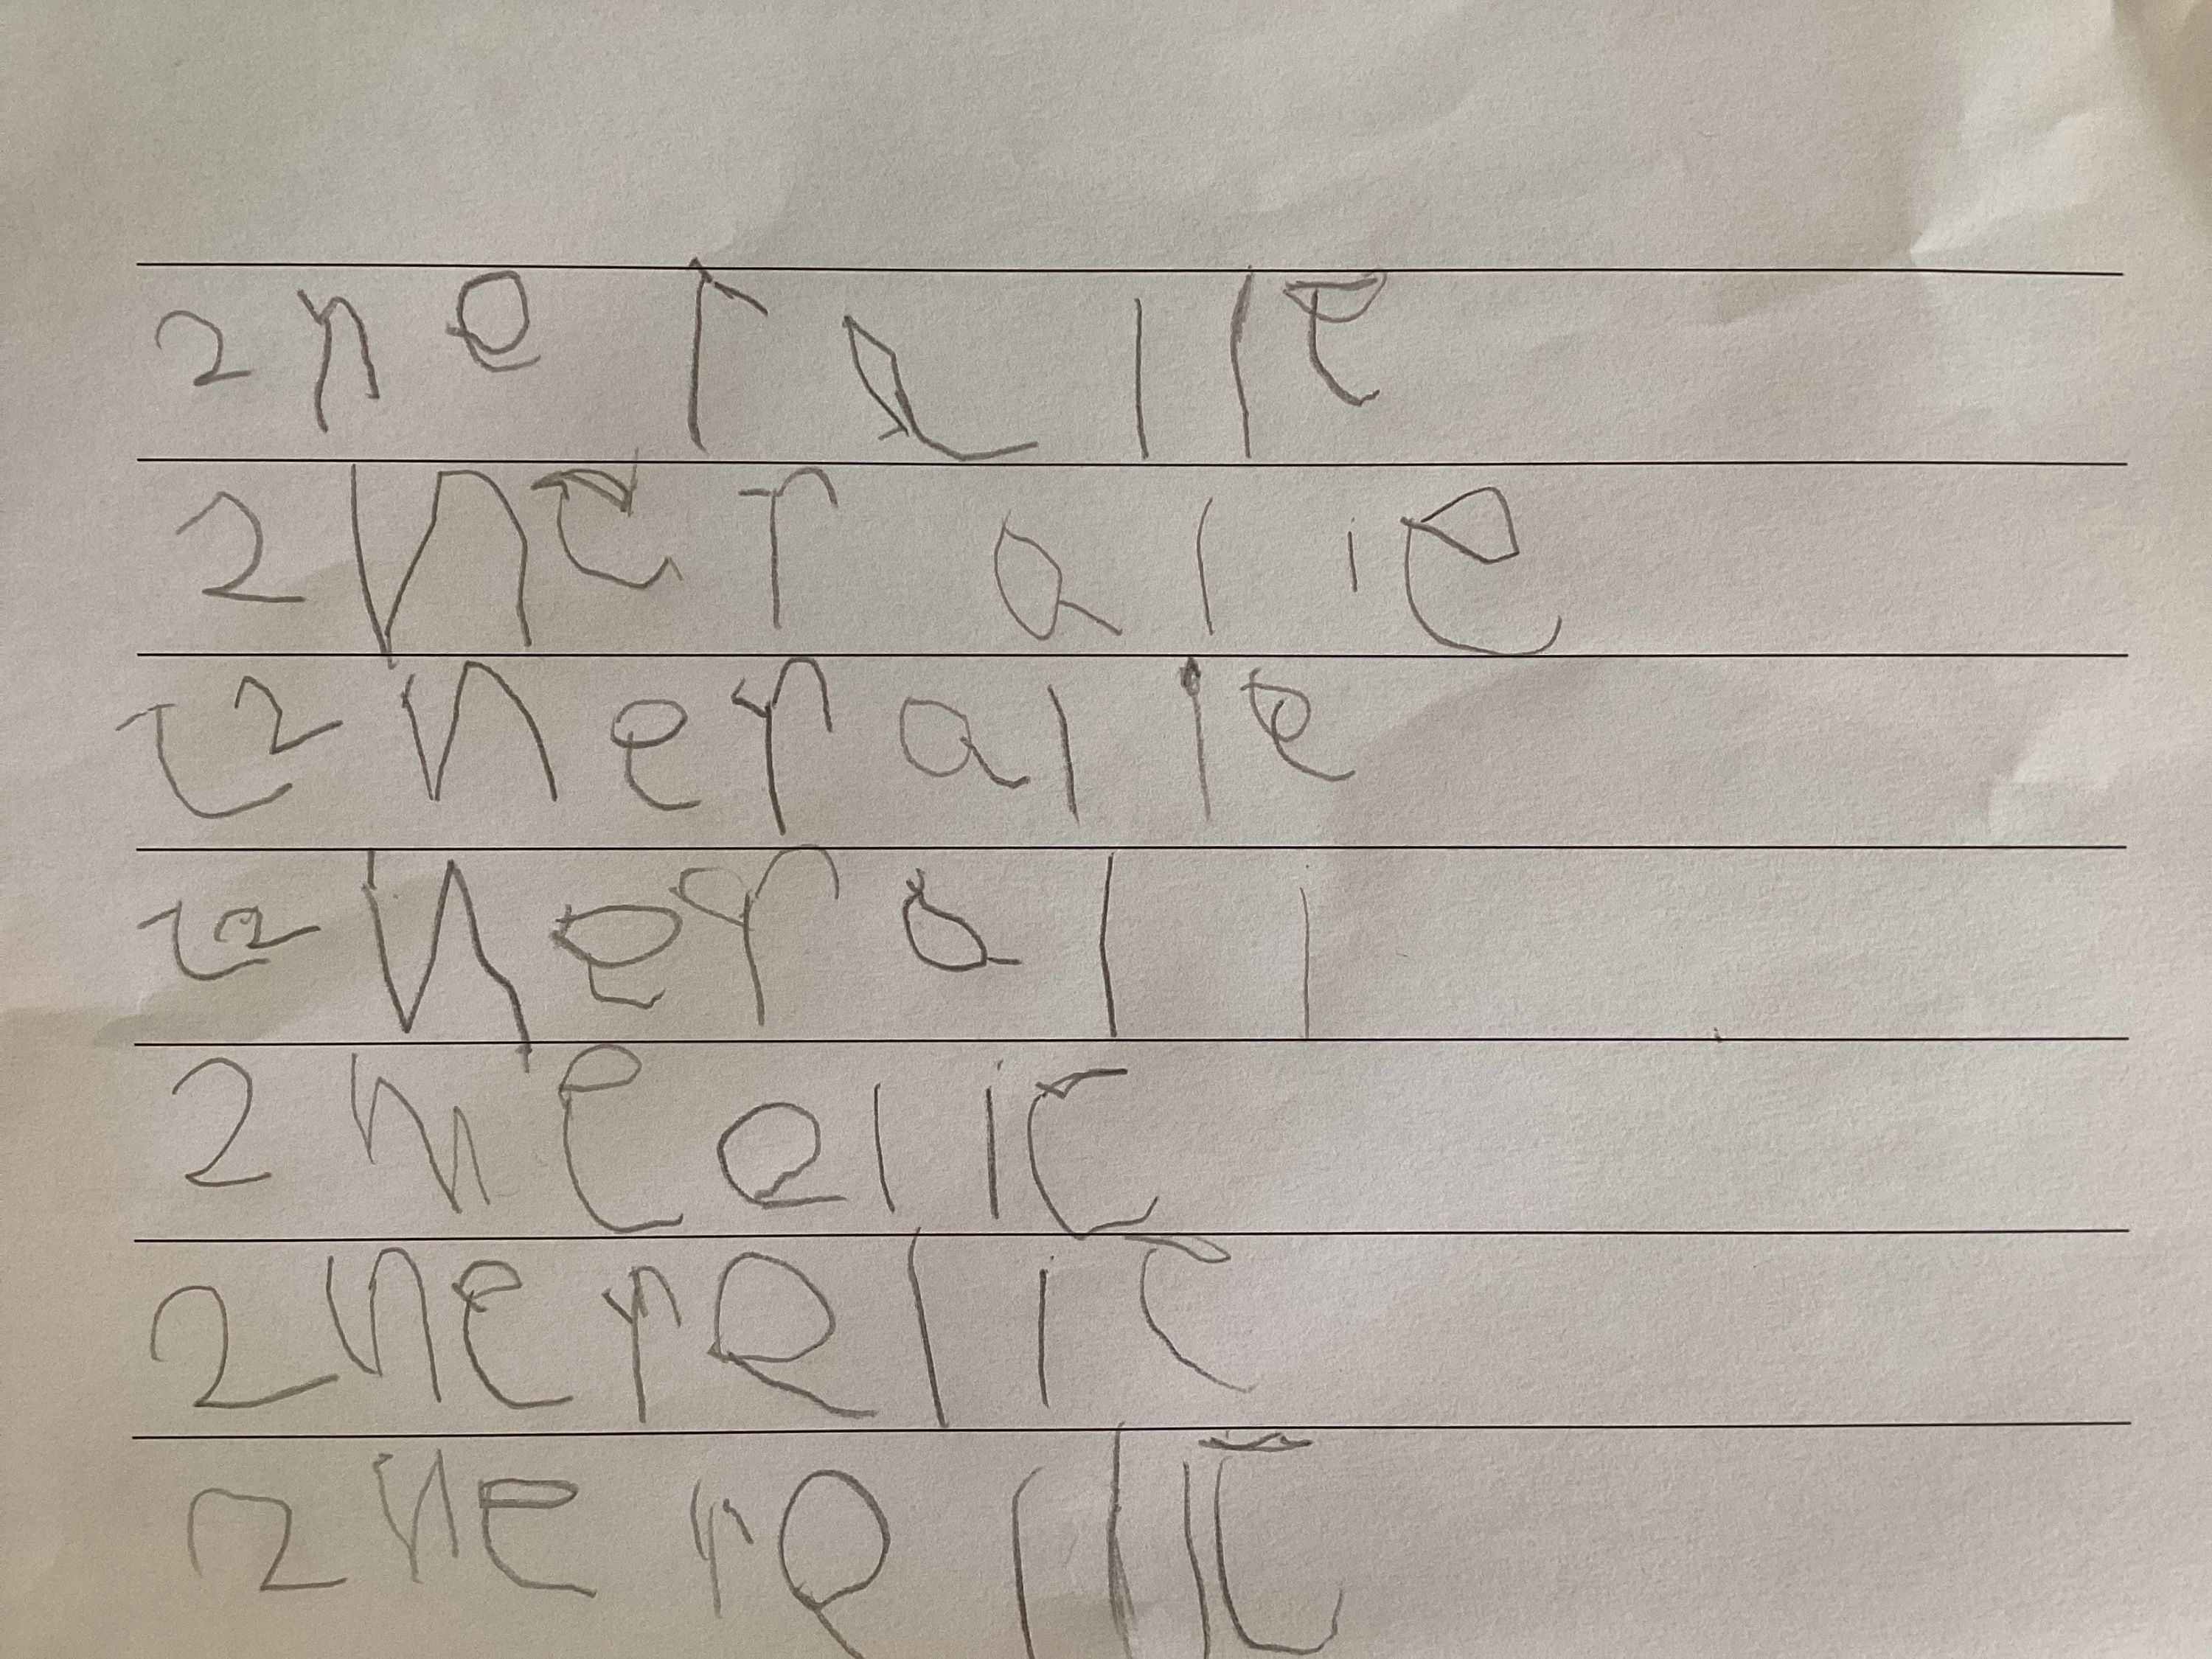 2neralle
2neralie
22neralie
22nerali
2nealie
2neralie
2nerallie